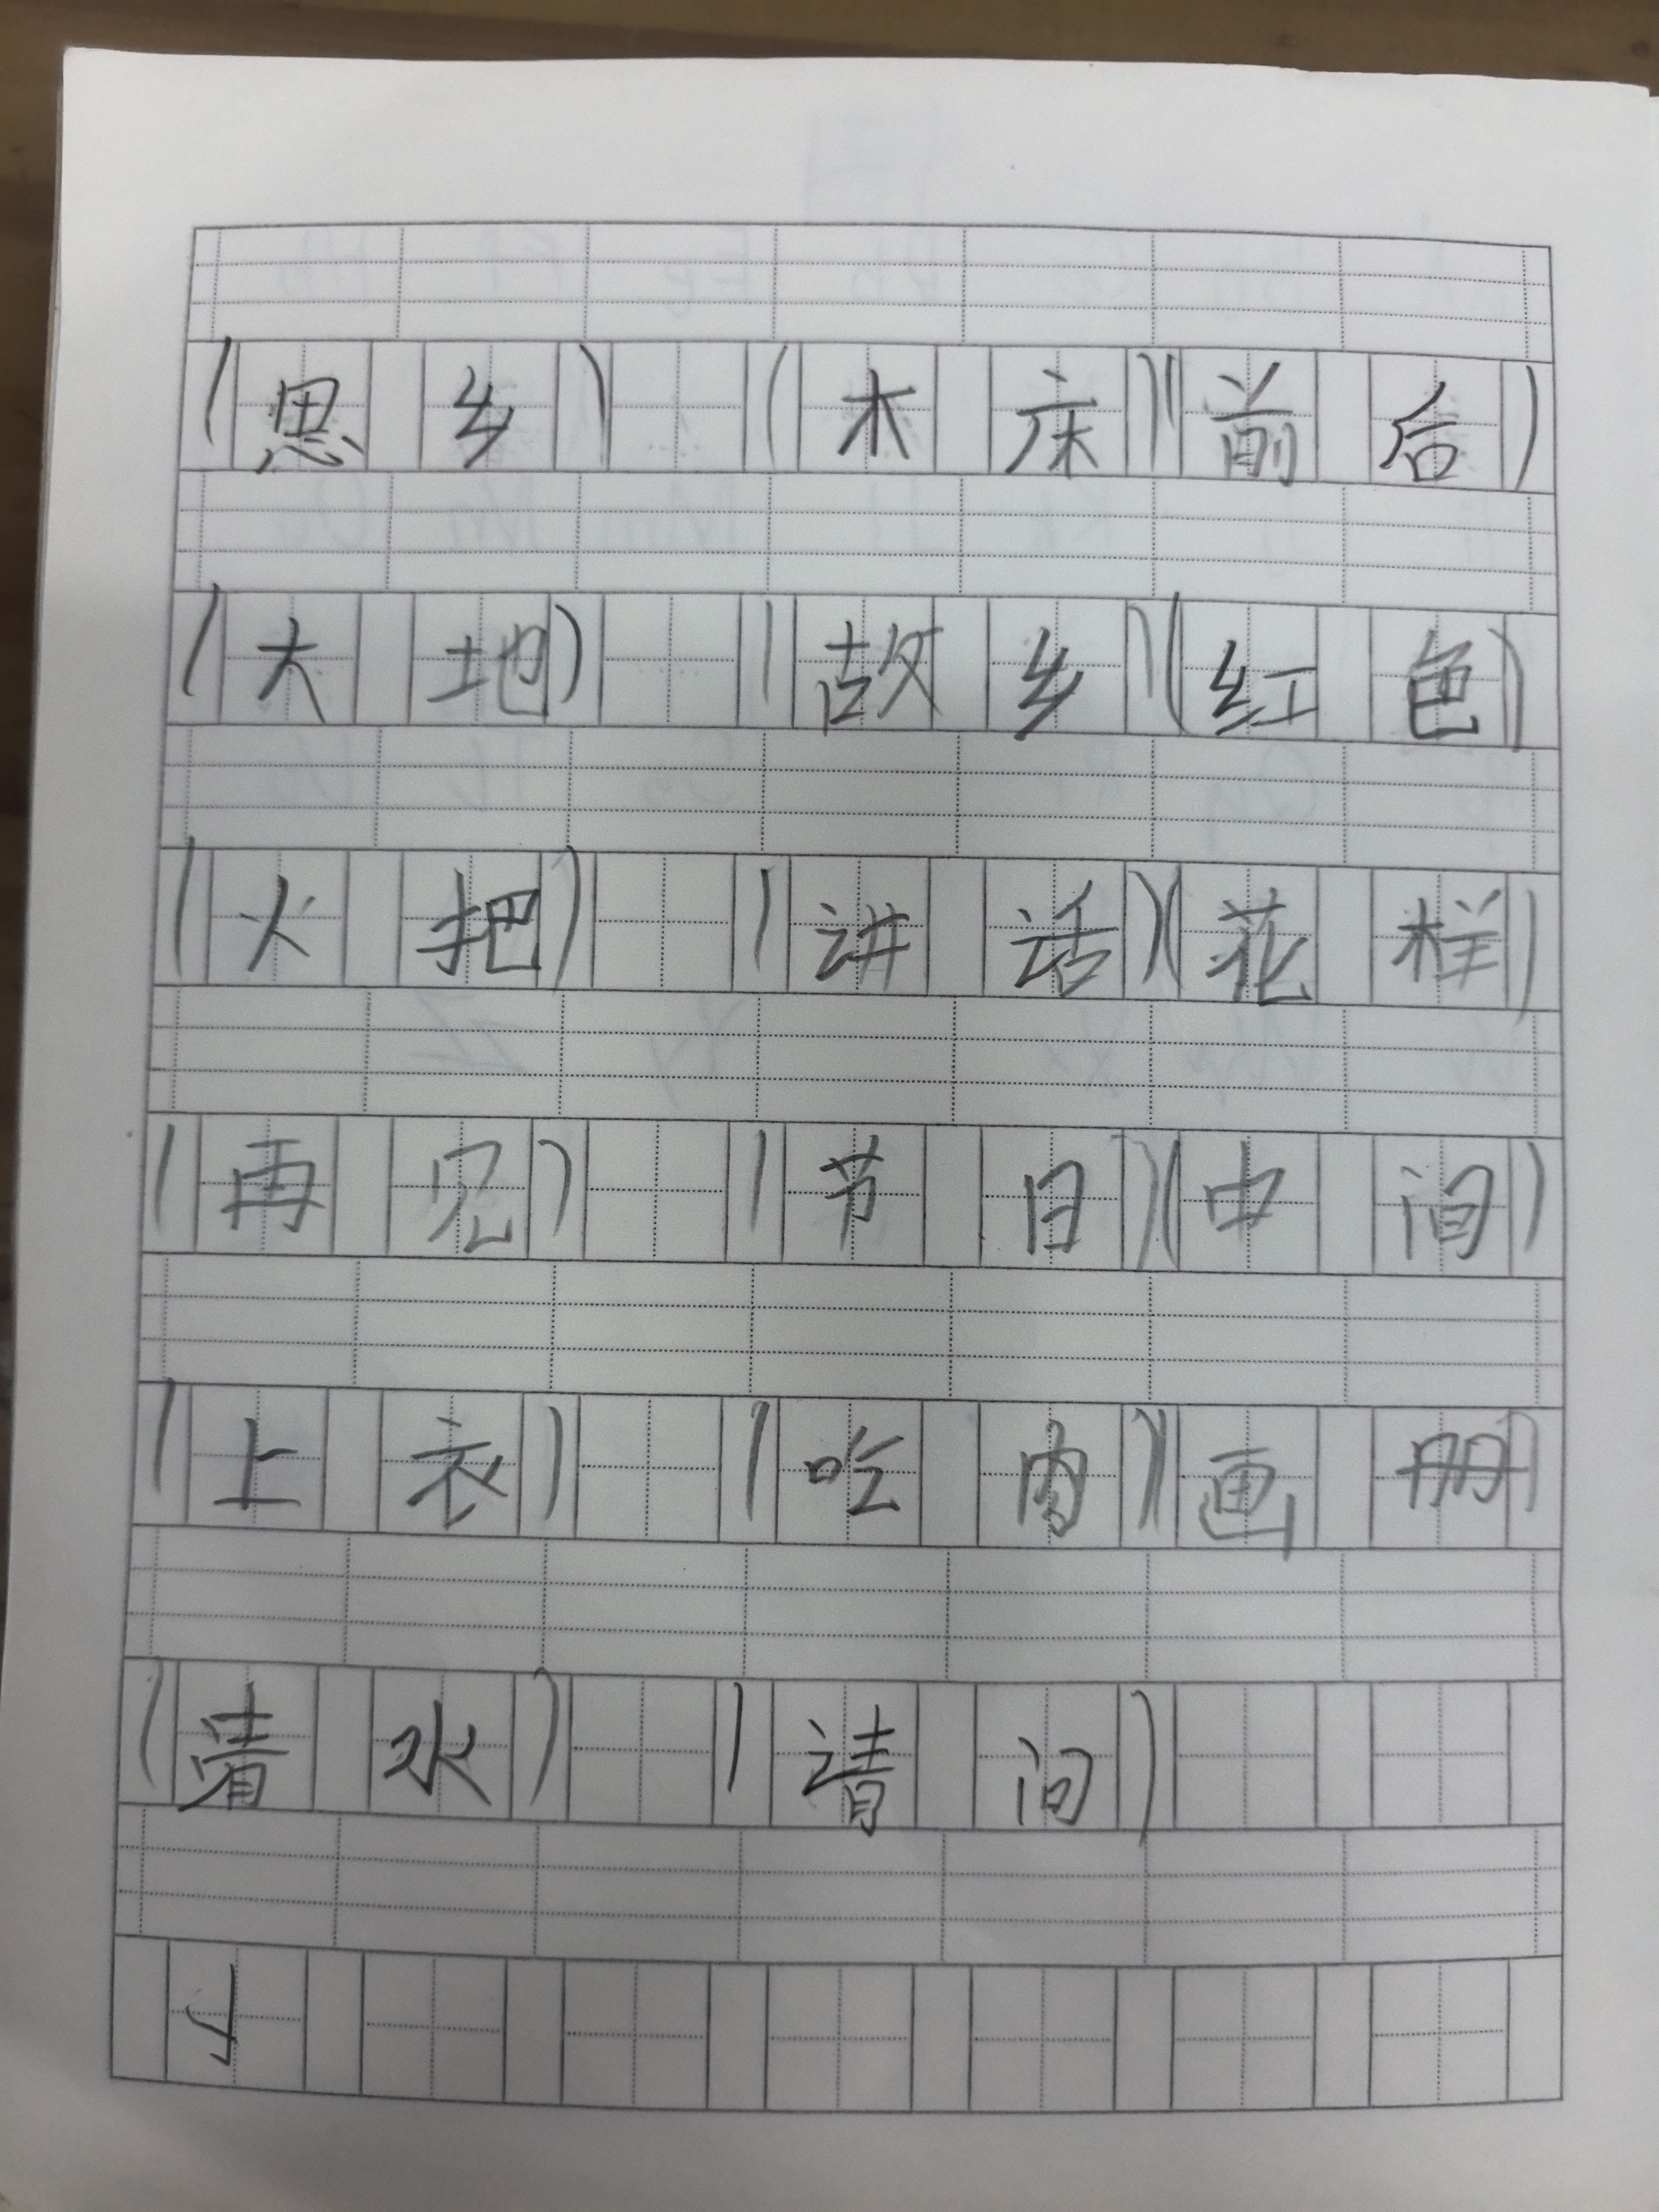 (思乡) (木床)(前后)
(大地) (故乡)(红色)
(火把) (讲话)(花样)
(再见) (节日)(中间)
(上衣) (吃肉)(画册)
(清水) (请问)